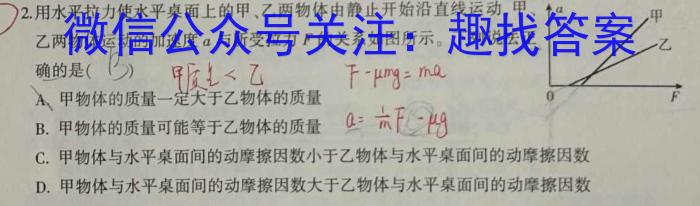 2.用水平拉力使水平桌面上的甲、乙两物体由静止开始沿直线运动,甲、
乙两物体运动的加速度a与所受拉力F的关系如图所示。
确的是( B )
微信公众号关注:趣找答案
甲质量<乙
F-μmg=ma
A. 甲物体的质量一定大于乙物体的质量
B. 甲物体的质量可能等于乙物体的质量
a=1/m F-μg
C. 甲物体与水平桌面间的动摩擦因数小于乙物体与水平桌面间的动摩擦因数
D. 甲物体与水平桌面间的动摩擦因数大于乙物体与水平桌面间的动摩擦因数
a
甲
乙
0
F